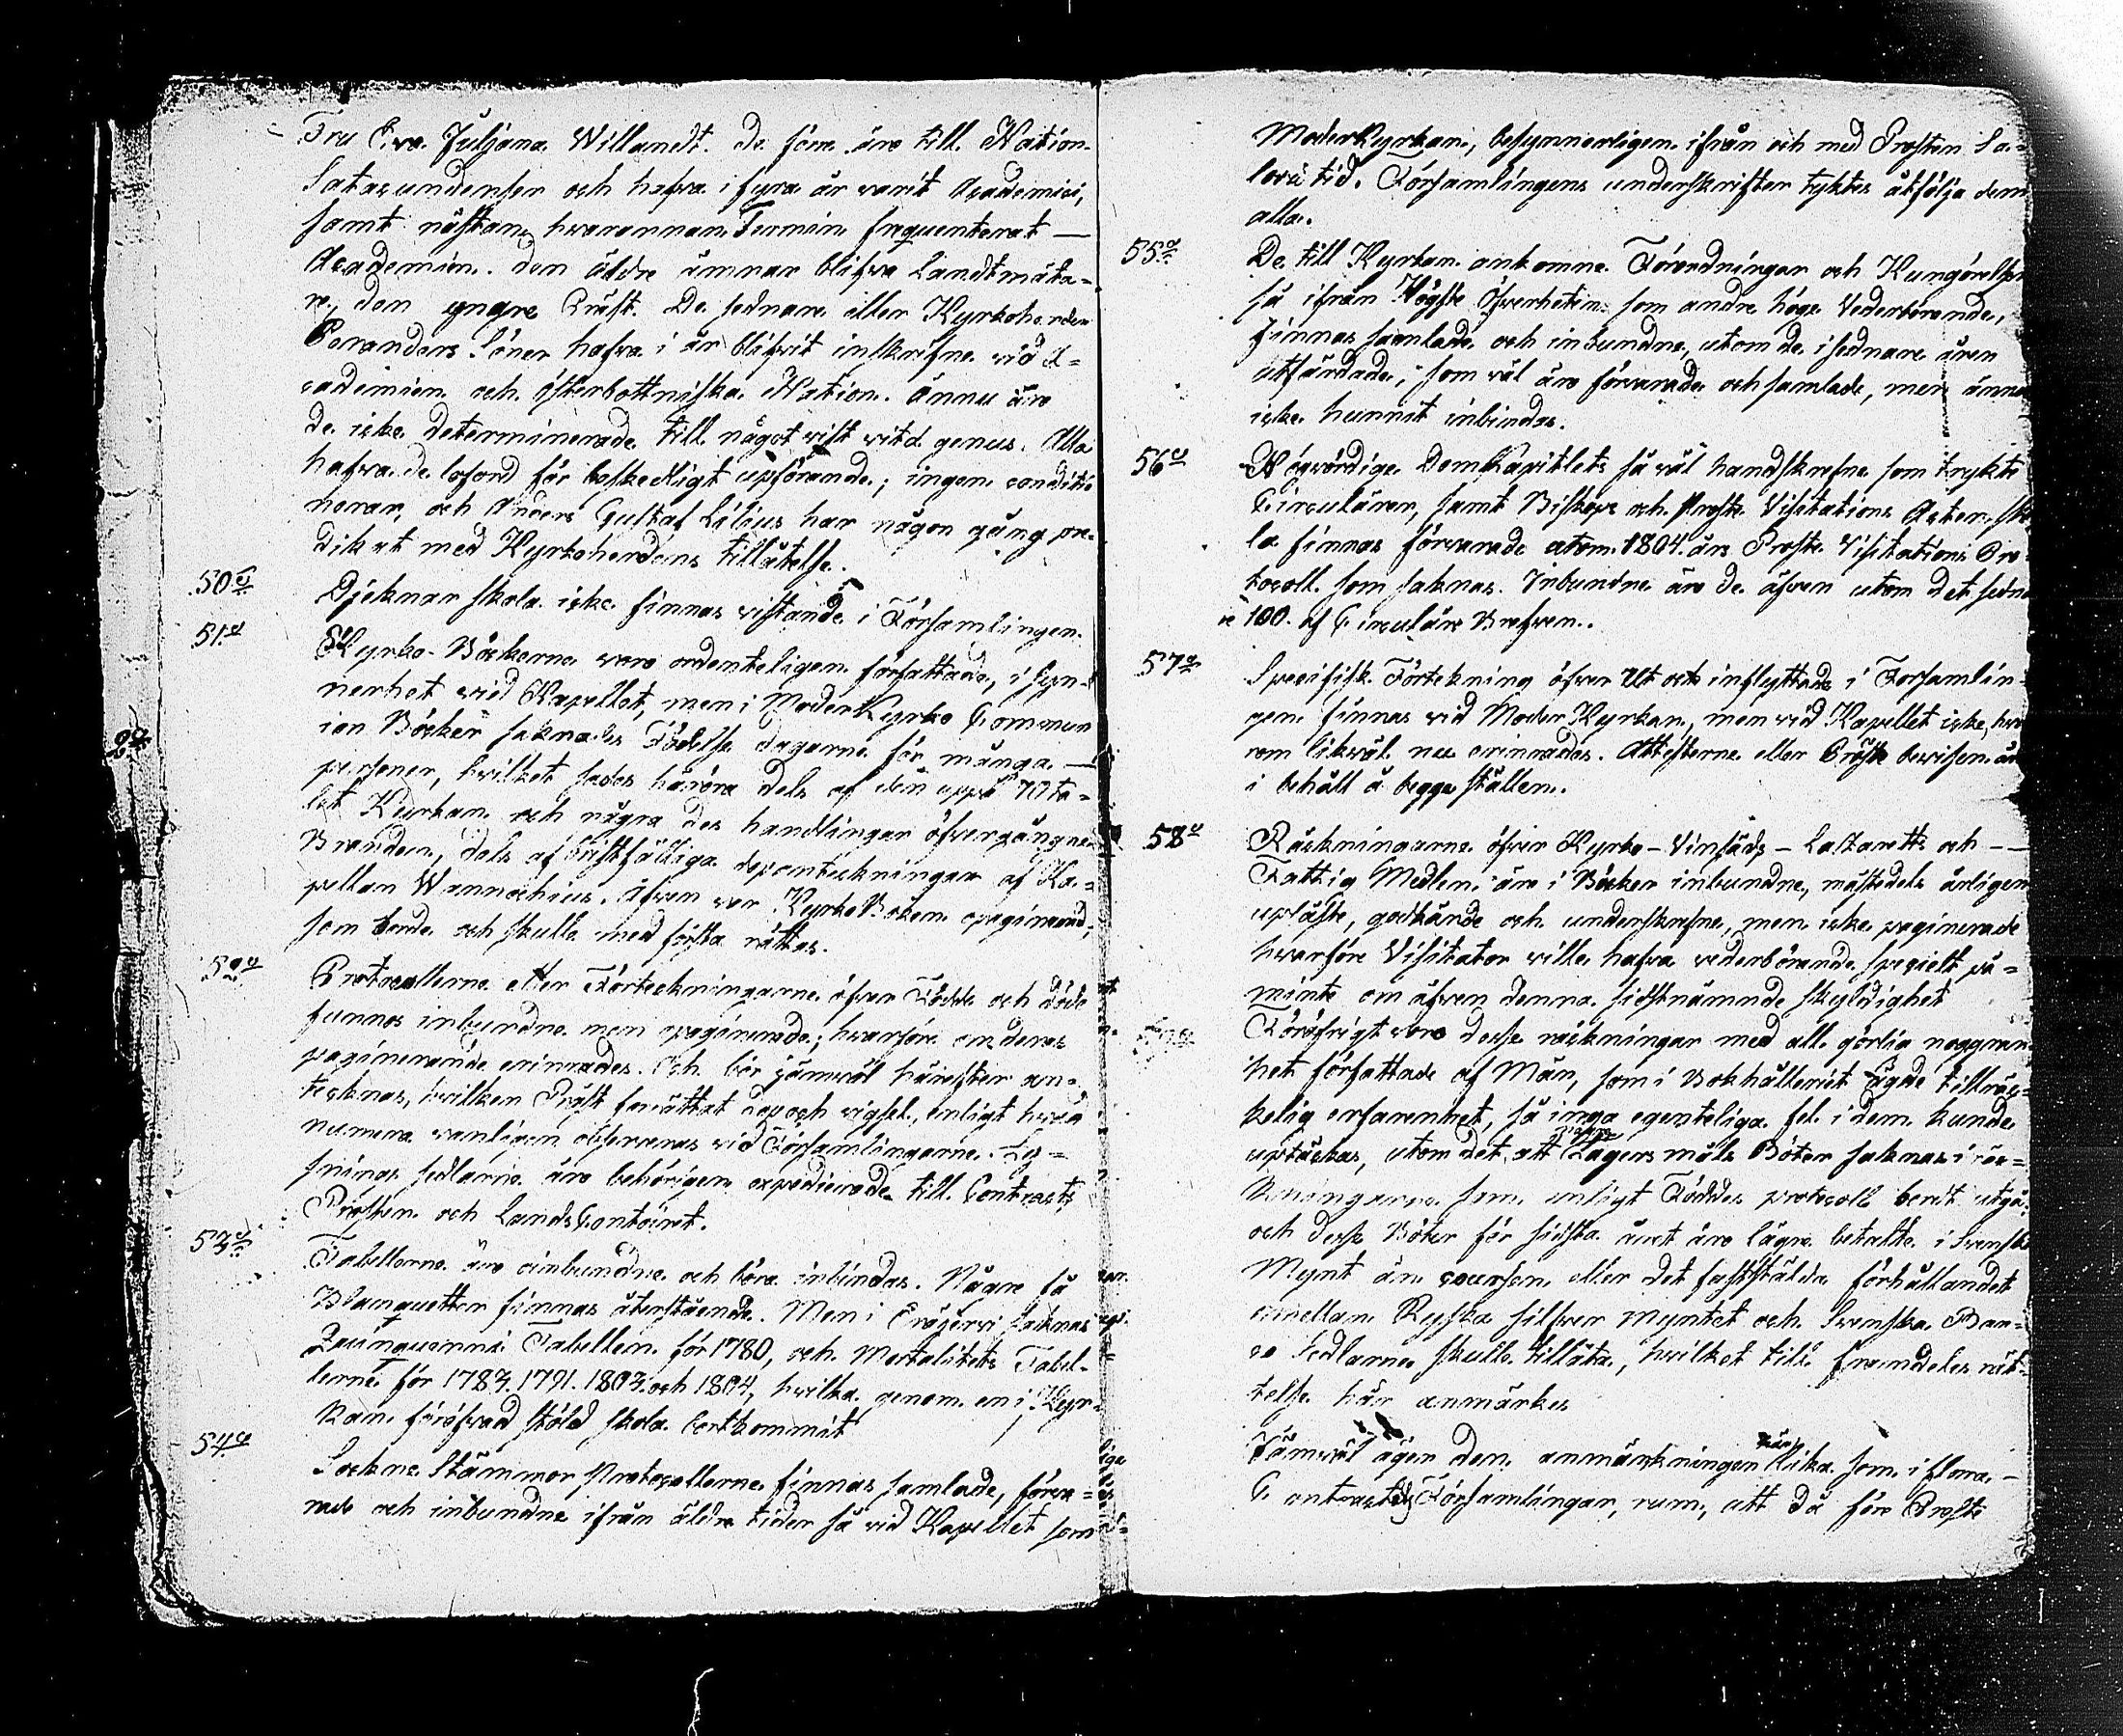 Fru Eva Juljana Willandt. De förre äro till Nation
Satacundenser och hafva i fyra år varit Academici,
samt nästan hvarannan Termin frequenterat —
Academien. Den äldre ämnar blifva Landtmäta=
re, den yngre Präst. De sednare eller Kyrkoherden
Peranders Söner hafva i år blifvit inskrifne vid A=
cademien och Österbottniska Nation. Ännu äro
de icke determinerade till något vist vitæ genus. Alla
hafva de loford för beskedligt upförande; ingen conditio
nerar, och Anders Gustaf Lilius har någon gång pre
dikat med Kyrkoherdens tillåtelse.
50 §
Djeknar skola icke finnas vistande i Församlingen.
51 §
Kyrko-Böckerna voro ordenteligen författade, i syn=
nerhet vid Kapellet, men i ModerKyrko Commun
ion Böcker saknades Födelse dagarne för många —
personer, hvilket sades härröra dels af den uppå 70 ta=
let Kyrkan och några des handlingar öfvergångne
Branden, dels af bristfälliga dopanteckningar af Ka=
pellan Wannochius. Äfven var KyrkoBoken opaginerad,
som borde och skulle med första rättas.
52 §
Protocollerne eller Förteckningarne öfver Födde och döde
funnos inbundne men opaginerade; hvarföre om deras
paginerande erinrades. Och bör jämväl härefter an=
tecknas, hvilken Präst förrättat dop och vigsel, enligt hvad
numera vanligen observeras vid Församlingarne. Lys=
nings sedlarne äro behörigen expedierade till Contracts
Prosten och LandsContoiret.
53 §
Tabellerne äro oinbundne och böra inbindas. Några få
Blanquetter finnas återstående. Men i Eräjärvi saknas
Quinquennii Tabellen för 1780, och Mortalitets Tabel=
lerne för 1783. 1791. 1803 och 1804, hvilka genom en i Kyr=
kan föröfvad stöld skola bortkommit
54 §
Sockne Stämmor Protocollerne finnas samlade, förva=
rade och inbundne ifrån äldre tider så vid Kapellet som
ModerKyrkan, besynnerligen ifrån och med Prosten Sa=
lovii tid. Församlingens underskrifter tyktes åtfölja dem
alla.
55 §
De till Kyrkan ankomne Förordningar och Kungörelser
så ifrån Högste Öfverheten som andre höge Vederbörande,
finnas samlade och inbundne, utom de i sednare åren
utfärdade, som väl äro förvarade och samlade, men ännu
icke hunnit inbindas.
56 §
Högvördige DomKapitlets så väl handskrefne som trykte
Circulairer, samt Biskops och Prosts Visitations Acter sko
la finnas förvarade utom 1804 års Prosts Visitations Pro=
tocoll som saknas. Inbundne äro de äfven utom det sedna
re 100. af Circulaire Brefven.
57 §
Specifik Förtekning öfver Ut och inflyttade i Församlin=
gen finnas vid Moder Kyrkan, men vid Kapellet icke, hva
rom likväl nu erinrades. Attesterne eller Präste bevisen äro
i behåll å begge ställen.
58 §
Räckningarne öfver Kyrko-Vinsäds-Lazaretts och —
Fattig Medlen äro i Böcker inbundne, mästedels årligen
upläste, godkände och underskrefne, men icke paginerade
hvarföre Visitator ville hafva vederbörande specielt på=
mint om äfven denna sidstnämnde skyldighet
Föröfrigt voro desse räckningar med all görlig noggran
het författade af Män, som i Bokhålleriet ägde tillräc=
kelig erfarenhet, så inga egenteliga fel i dem kunde
uptäckas, utom det, att några Lägersmåls Böter saknas i räk=
kningarne som enligt Föddes protocoll bordt utgå,
och desse Böter för sidsta året äro lägre betalte i Svenskt
Mynt än coursen eller det fastställda förhållandet
emellan Ryska silfver myntet och Svenska Ban=
co Sedlarne skulle tillåta, hvilket till framdeles rät=
telse här anmärkes
Jämväl äger den anmärkningen här lika som i flera —
Contractets Församlingar, rum, att då före Prosts